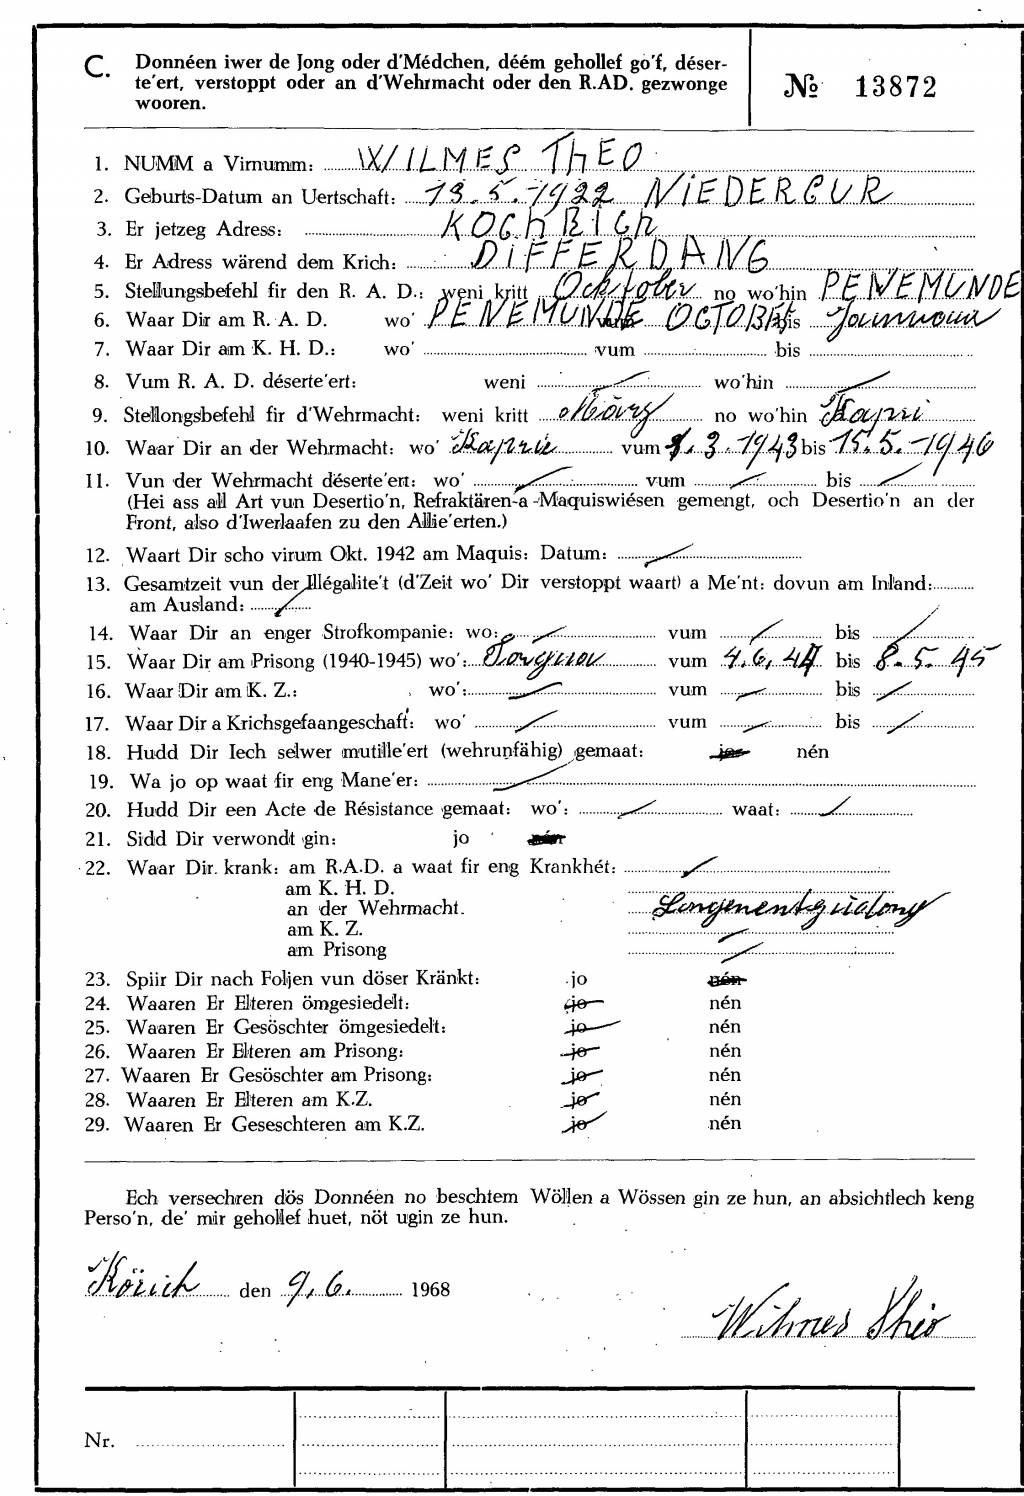 C. Donnéen iwer de Jong oder d'Médchen, déém gehollef go'f, déser-
te'ert, verstoppt oder an d'Wehrmacht oder den R.AD. gezwonge
wooren.
№ 13872
1. NUMM a Virnumm: WILMES THEO
2. Geburts-Datum an Uertschaft: 13.5.-1922 NIEDERCUR
3. Er jetzeg Adress:
4. Er Adress wärend dem Krich: DIFFERDANG
5. Stellungsbefehl fir den R. A. D.: weni kritt October no wo'hin PENEMUNDE
6. Waar Dir am R. A. D. wo' PENEMUNDE vum OCTOBER bis
7. Waar Dir am K. H. D.: wo' vum bis
8. Vum R. A. D. déserte'ert: weni wo'hin
9. Stellongsbefehl fir d'Wehrmacht: weni kritt März no wo'hin Kapri
10. Waar Dir an der Wehrmacht: wo' Kaprie vum 1.3.-1943 bis 15.5.-1946
11. Vun der Wehrmacht déserte'ert: wo' vum bis
(Hei ass all Art vun Desertio'n, Refraktären-a -Maquiswiésen gemengt, och Desertio'n an der
Front, also d'Iwerlaafen zu den Allie'erten.)
12. Waart Dir scho virum Okt. 1942 am Maquis: Datum:
13. Gesamtzeit vun der Illégalite't (d'Zeit wo' Dir verstoppt waart) a Me'nt: dovun am Inland:
am Ausland:
14. Waar Dir an enger Strofkompanie: wo: vum bis
15. Waar Dir am Prisong (1940-1945) wo': vum 4.6.44 bis 8.5.45
16. Waar Dir am K. Z.: wo': vum bis
17. Waar Dir a Krichsgefaangeschaft: wo' vum bis
18. Hudd Dir Iech selwer mutille'ert (wehrunfähig) gemaat: jo nén
19. Wa jo op waat fir eng Mane'er:
20. Hudd Dir een Acte de Résistance gemaat: wo': waat:
21. Sidd Dir verwondt gin: jo nén
22. Waar Dir krank: am R.A.D. a waat fir eng Krankhét:
am K. H. D.
an der Wehrmacht.
am K. Z.
am Prisong
23. Spiir Dir nach Foljen vun döser Kränkt: jo nén
24. Waaren Er Elteren ömgesiedelt: jo nén
25. Waaren Er Gesöschter ömgesiedelt: jo nén
26. Waaren Er Elteren am Prisong: jo nén
27. Waaren Er Gesöschter am Prisong: jo nén
28. Waaren Er Elteren am K.Z. jo nén
29. Waaren Er Geseschteren am K.Z. jo nén
Ech versechren dös Donnéen no beschtem Wöllen a Wössen gin ze hun, an absichtlech keng
Perso'n, de' mir gehollef huet, nöt ugin ze hun.
Körich den 9.6. 1968
Wilmes Theo
Nr.